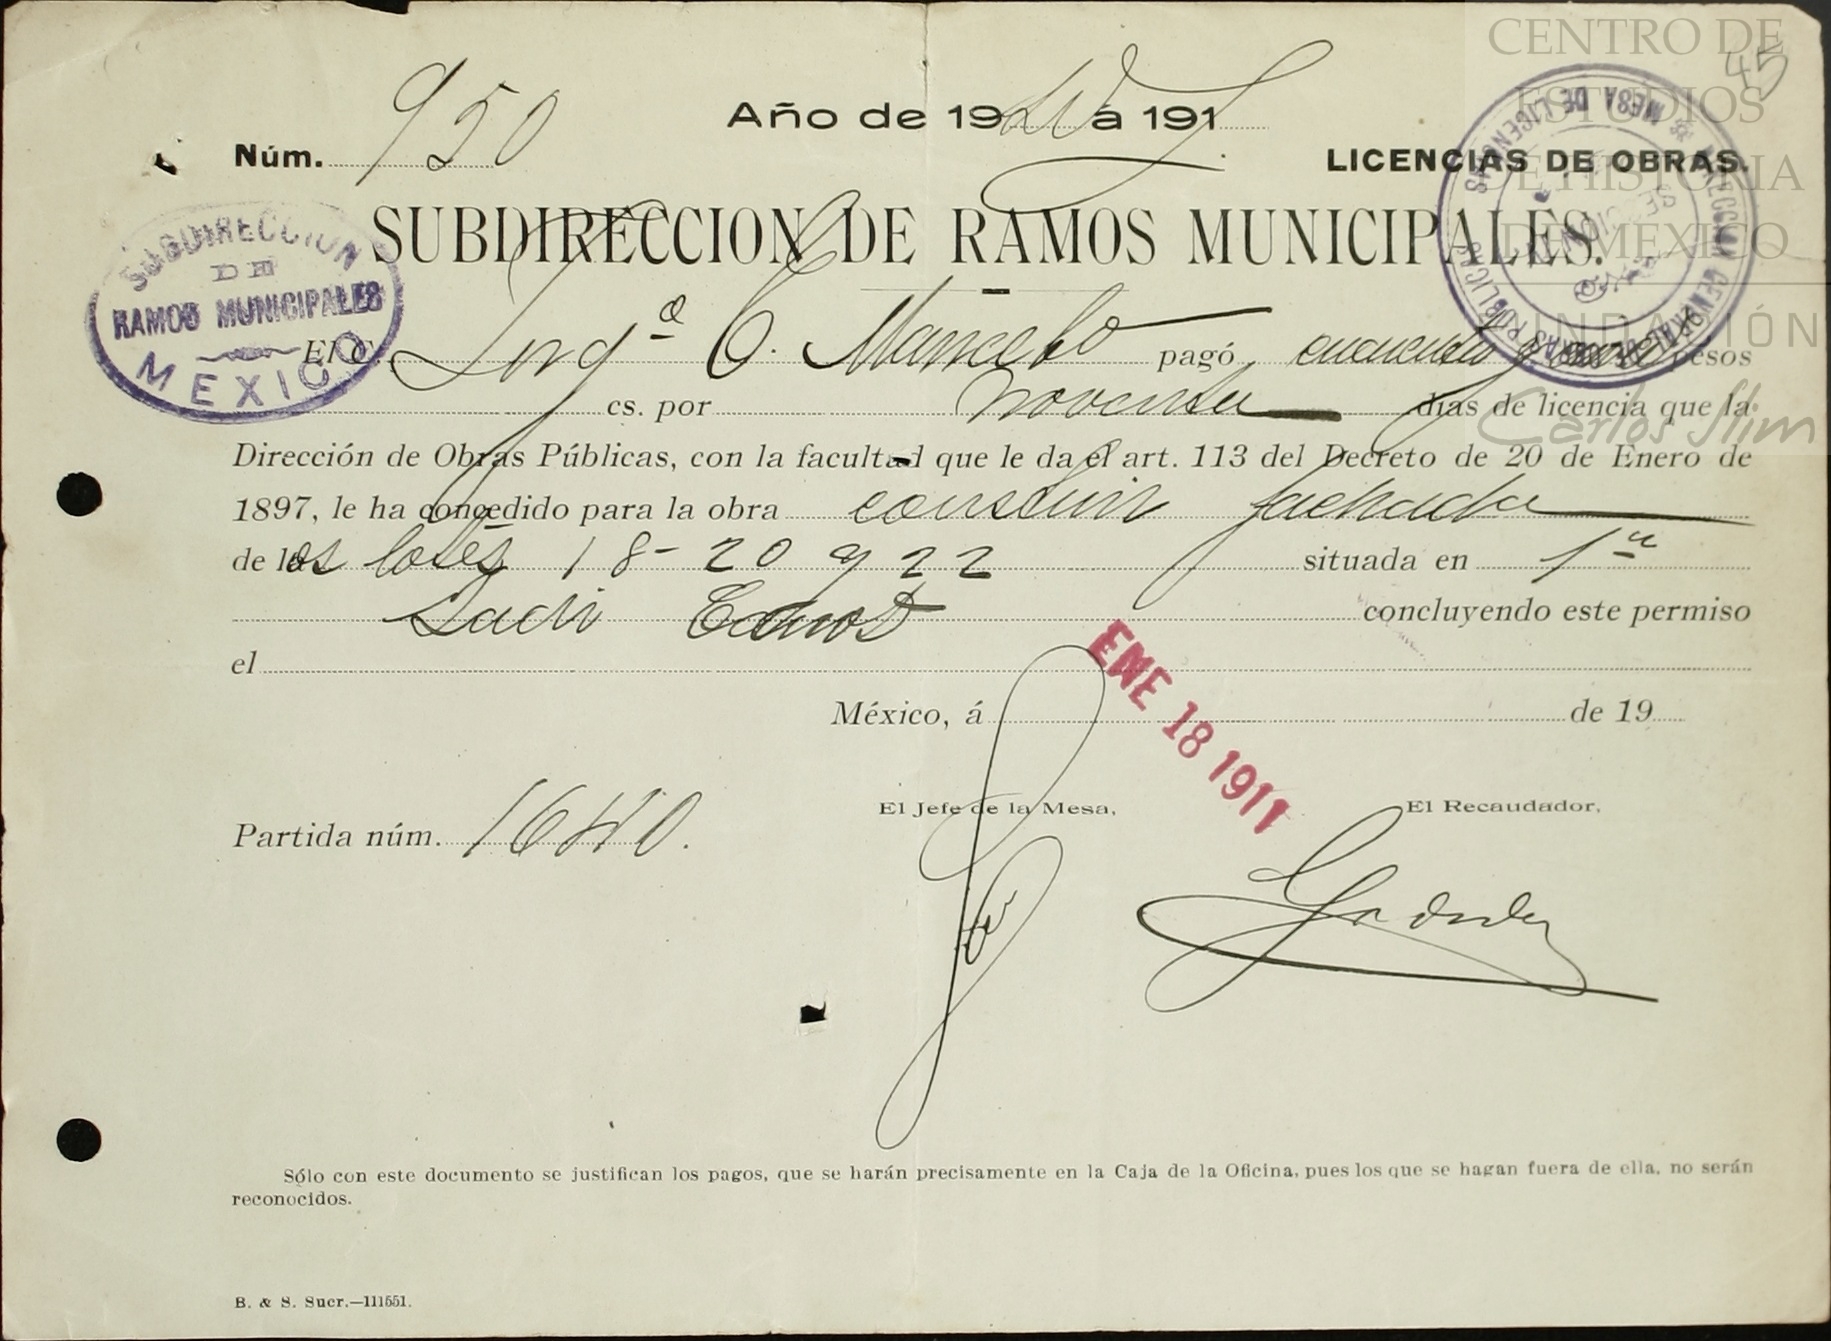 CENTRO DE
ESTUDIOS
DE HISTORIA
DE MEXICO
FUNDACIÓN
Carlos Slim
45
Año de 19 á 191
Núm. 950
LICENCIAS DE OBRAS.
SUBDIRECCION DE RAMOS MUNICIPALES.
SUBDIRECCION
DE
RAMOS MUNICIPALES
MEXICO
DIRECCION GENERAL DE OBRAS PUBLICAS
MESA DE LICENCIAS
El C. Jorge C. Mancebo pagó cincuenta y pesos
cs. por noventa días de licencia que la
Dirección de Obras Públicas, con la facultad que le da el art. 113 del Decreto de 20 de Enero de
1897, le ha concedido para la obra construir fachada
de los lotes 18-20 y 22 situada en 1a
concluyendo este permiso
el
ENE 18 1911
México, á de 19
El Jefe de la Mesa,
El Recaudador,
Partida núm. 16440.
Sólo con este documento se justifican los pagos, que se harán precisamente en la Caja de la Oficina, pues los que se hagan fuera de ella, no serán
reconocidos.
B. & S. Sucr.—111551.